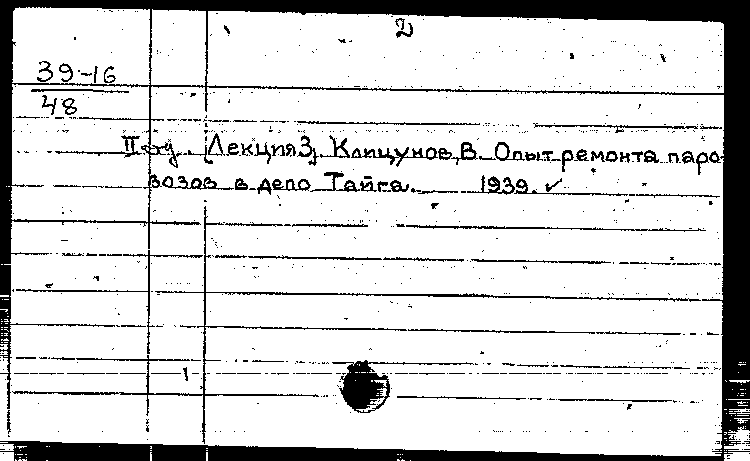 2
39-16
48
II Лекция 3. Клицунов, В. Опыт ремонта паро-
возов в депо Тайга. 1939. ✓